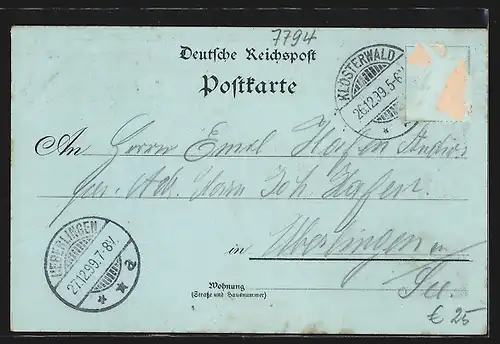 7794
Deutsche Reichspost
Postkarte
KLOSTERWALD
26.12.99.5-6N
An Herrn Emil Hafen
Joh. Hafen
in Überlingen a/
See.
UEBERLINGEN
27.12.99.7-8V.
a
Wohnung
(Straße und Hausnummer)
€ 25